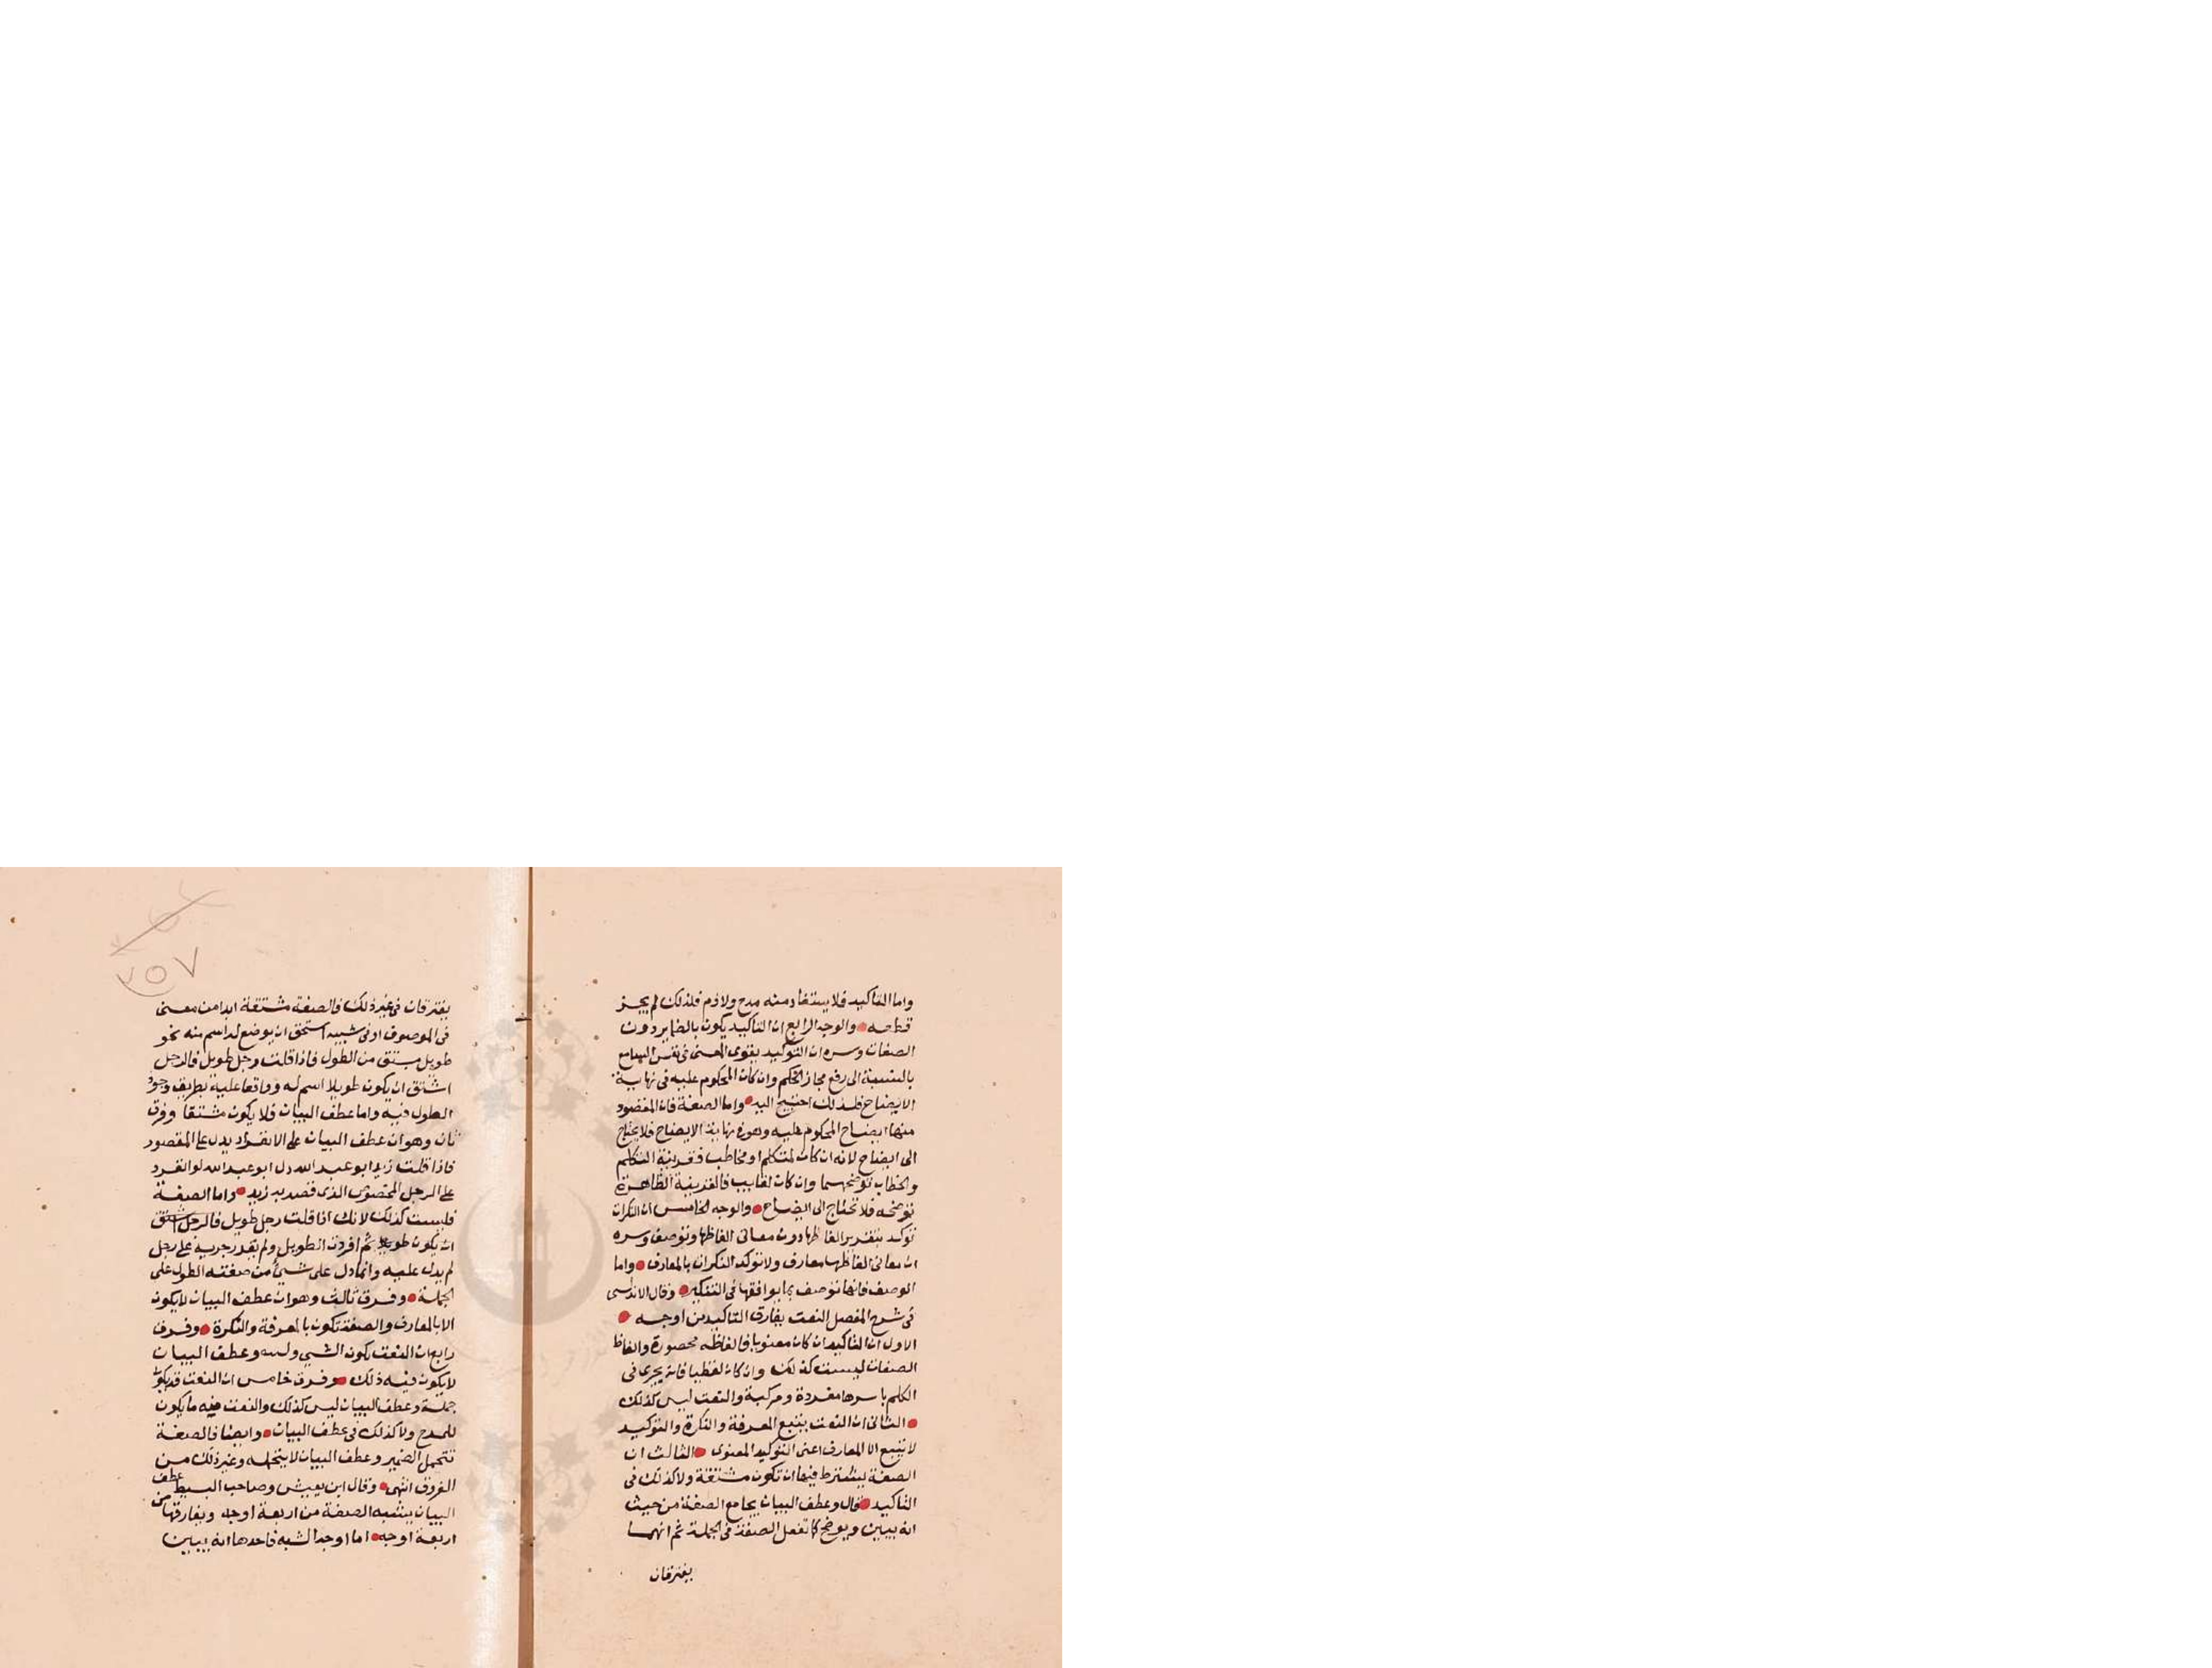 واما التاكيد فلا يستفاد منه مدح ولا ذم فلذلك لم يجز
قطعه والوجه الرابع ان التاكيد يكون بالضاير دون
الصفات وسره ان التوكيد يقوى المعنى فى نفس السامع
بالنسبة الى رفع مجاز الحكم وان كان المحكوم عليه فى نهاية
الايضاح فلذلك احتيج اليه واما الصفة فان المقصود
منها ايضاح المحكوم عليه وهو فى نهاية الايضاح فلا يحتاج
الى ايضاح لانه ان كان لمتكلم او مخاطب فقرينة التكلم
والخطاب توضحهما وان كان لغايب فالقرينة الظاهرة
توضحه فلا تحتاج الى ايضاح والوجه الخامس ان النكرات
توكد بتقرير الفاظها دون معانى الفاظها وتوصف وسره
ان معانى الفاظها معارف ولا توكد النكرات بالمعارف واما
الوصف فانها توصف بما يوافقها فى التنكير وقال الاندلسى
فى شرح المفصل النعت يفارق التاكيد من اوجه
الاول ان التاكيد ان كان معنويا فالفاظه محصورة والفاظ
الصفات ليست كذلك وان كان لفظيا فانه يجرى فى
الكلم باسرها مفردة ومركبة والنعت ليس كذلك
الثانى ان النعت يتبع المعرفة والنكرة والتوكيد
لا يتبع الا المعارف اعنى التوكيد المعنوى الثالث ان
الصفة يشترط فيها ان تكون مشتقة ولا كذلك فى
التاكيد قال وعطف البيان يجامع الصفة من حيث
انه يبين ويوضح كما تفعل الصفة فى الجملة ثم انهما
يفترقان
٧٥٧
يفترقان فى غير ذلك فالصفة مشتقة ابدا من معنى
فى الموصوف او فى شبيه استحق ان يوضع له اسم منه نحو
طويل مشتق من الطول فاذا قلت رجل طويل فالرجل
اشتق ان يكون طويلا اسم له وواقعا عليه بطريق وجود
الطول فيه واما عطف البيان فلا يكون مشتقا وفرق
ثان وهو ان عطف البيان على الانفراد يدل على المقصود
فاذا قلت زيد ابو عبد الله دل ابو عبد الله لو انفرد
على الرجل المخصوص الذى قصد به زيد واما الصفة
فليست كذلك لانك اذا قلت رجل طويل فالرجل اشتق
ان يكون طويلا ثم افردت الطويل ولم تقدر جريه على رجل
لم يدل عليه وانما دل على شيئ من صفته الطول على
الجملة وفرق ثالث وهو ان عطف البيان لا يكون
الا بالمعارف والصفة تكون بالمعرفة والنكرة وفرق
رابع ان النعت يكون الشى ولسببه وعطف البيان
لا يكون فيه ذلك وفرق خامس ان النعت قد يكون
جملة وعطف البيان ليس كذلك والنعت منه ما يكون
للمدح ولا كذلك فى عطف البيان وايضا فالصفة
تتحمل الضمير وعطف البيان لا يتحمله وغير ذلك من
الفروق انتهى وقال ابن يعيش وصاحب البسيط عطف
البيان يشبه الصفة من اربعة اوجه ويفارقها من
اربعة اوجه اما اوجه الشبه فاحدها انه يبين